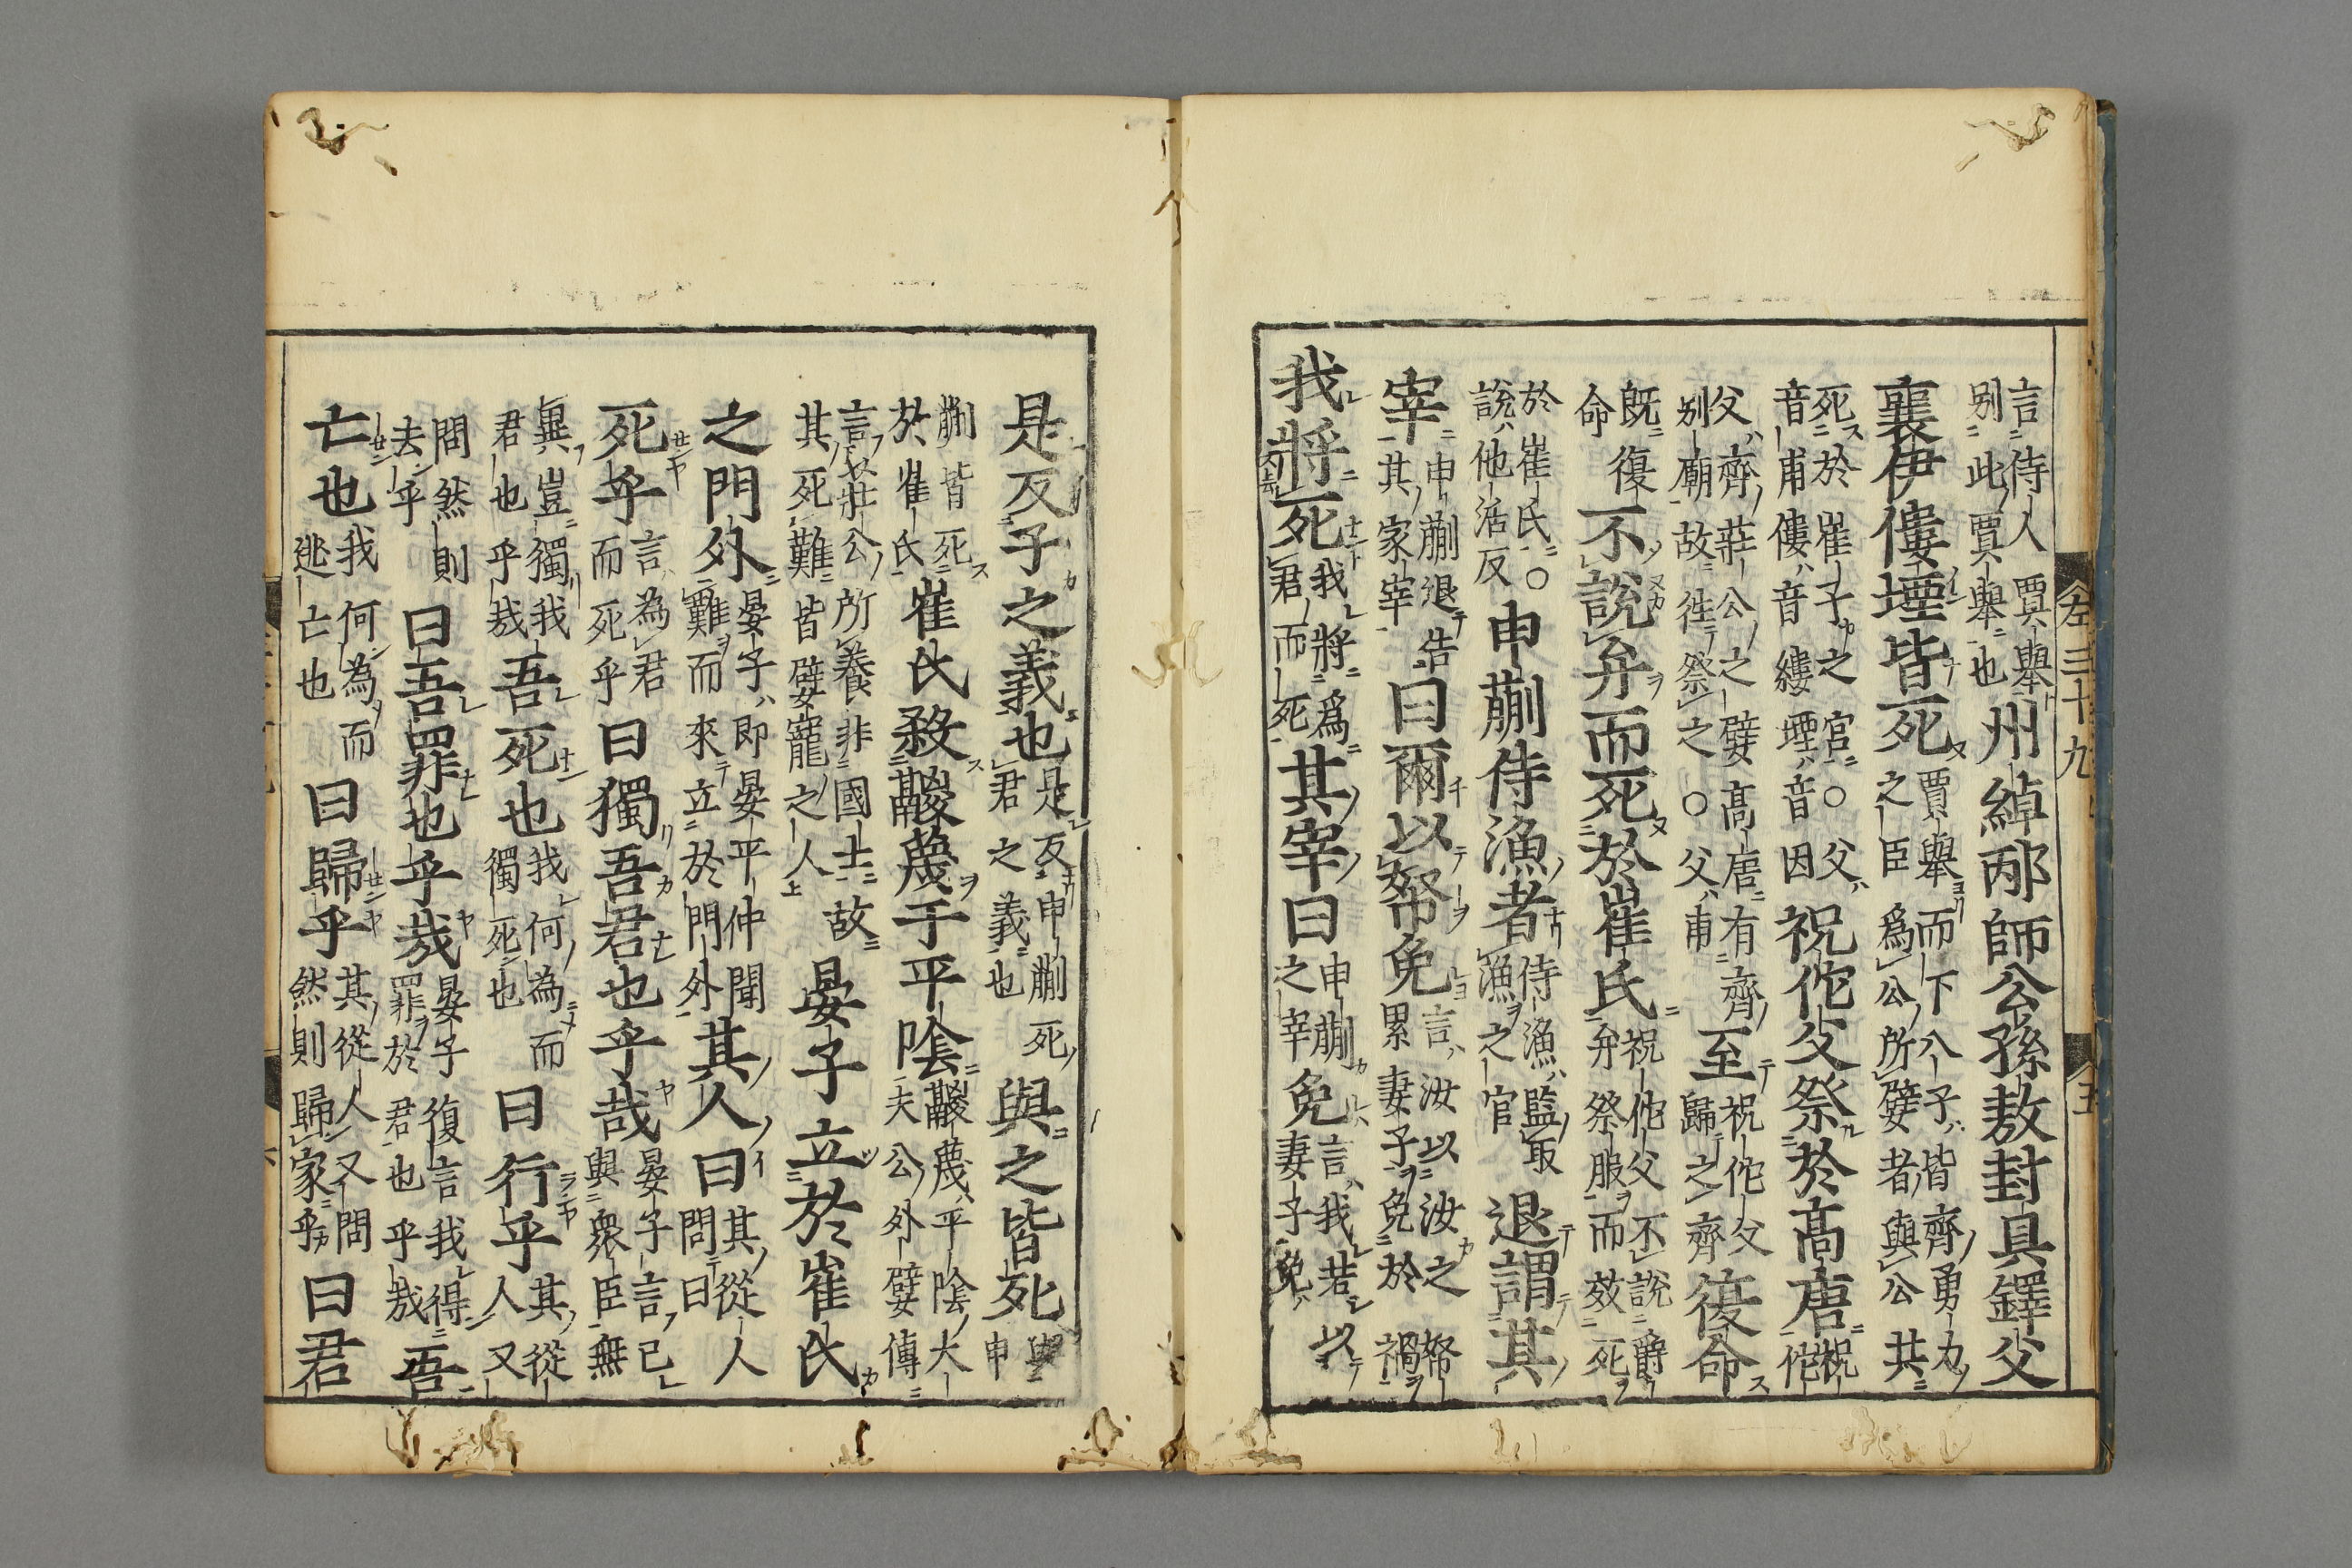 左三十九
五
言侍人賈舉別此賈舉也州綽邴師公孫敖封具鐸父
襄伊僂堙皆死賈舉而下八子皆齊勇力之臣爲公所嬖者與公共
死於崔子之宮○父音甫僂音縷堙音因祝佗父祭於高唐祝佗
父齊莊公之嬖高唐有齊別廟故徃祭之○父甫至祝佗父歸之齊復命
既復命不說弁而死於崔氏祝佗父不說爵弁祭服而效死
於崔氏○說他活反申蒯侍漁者侍漁監取漁之官退謂其
宰申蒯退告其家宰曰爾以帑免言汝以汝之帑累妻子免於禍
我將死我將爲君而死其宰曰申蒯之宰免言我若以妻子免
是反子之義也是反申蒯死君之義也與之皆死與申
蒯皆死於崔氏崔氏殺鬷蔑于平陰鬷蔑平陰大夫公外嬖傳
言莊公所養非國士故其死難皆嬖寵之人晏子立於崔氏
之門外晏子即晏平仲聞難而來立於門外其人曰其從人問曰
死乎言為君而死乎曰獨吾君也乎哉晏子言己與衆臣無
異豈獨我君也乎哉吾死也我何為而獨死也曰行乎其從人又
問然則去乎曰吾罪也乎哉晏子復言我得罪於君也乎哉吾
亡也我何為而逃亡也曰歸乎其從人又問然則歸家乎曰君